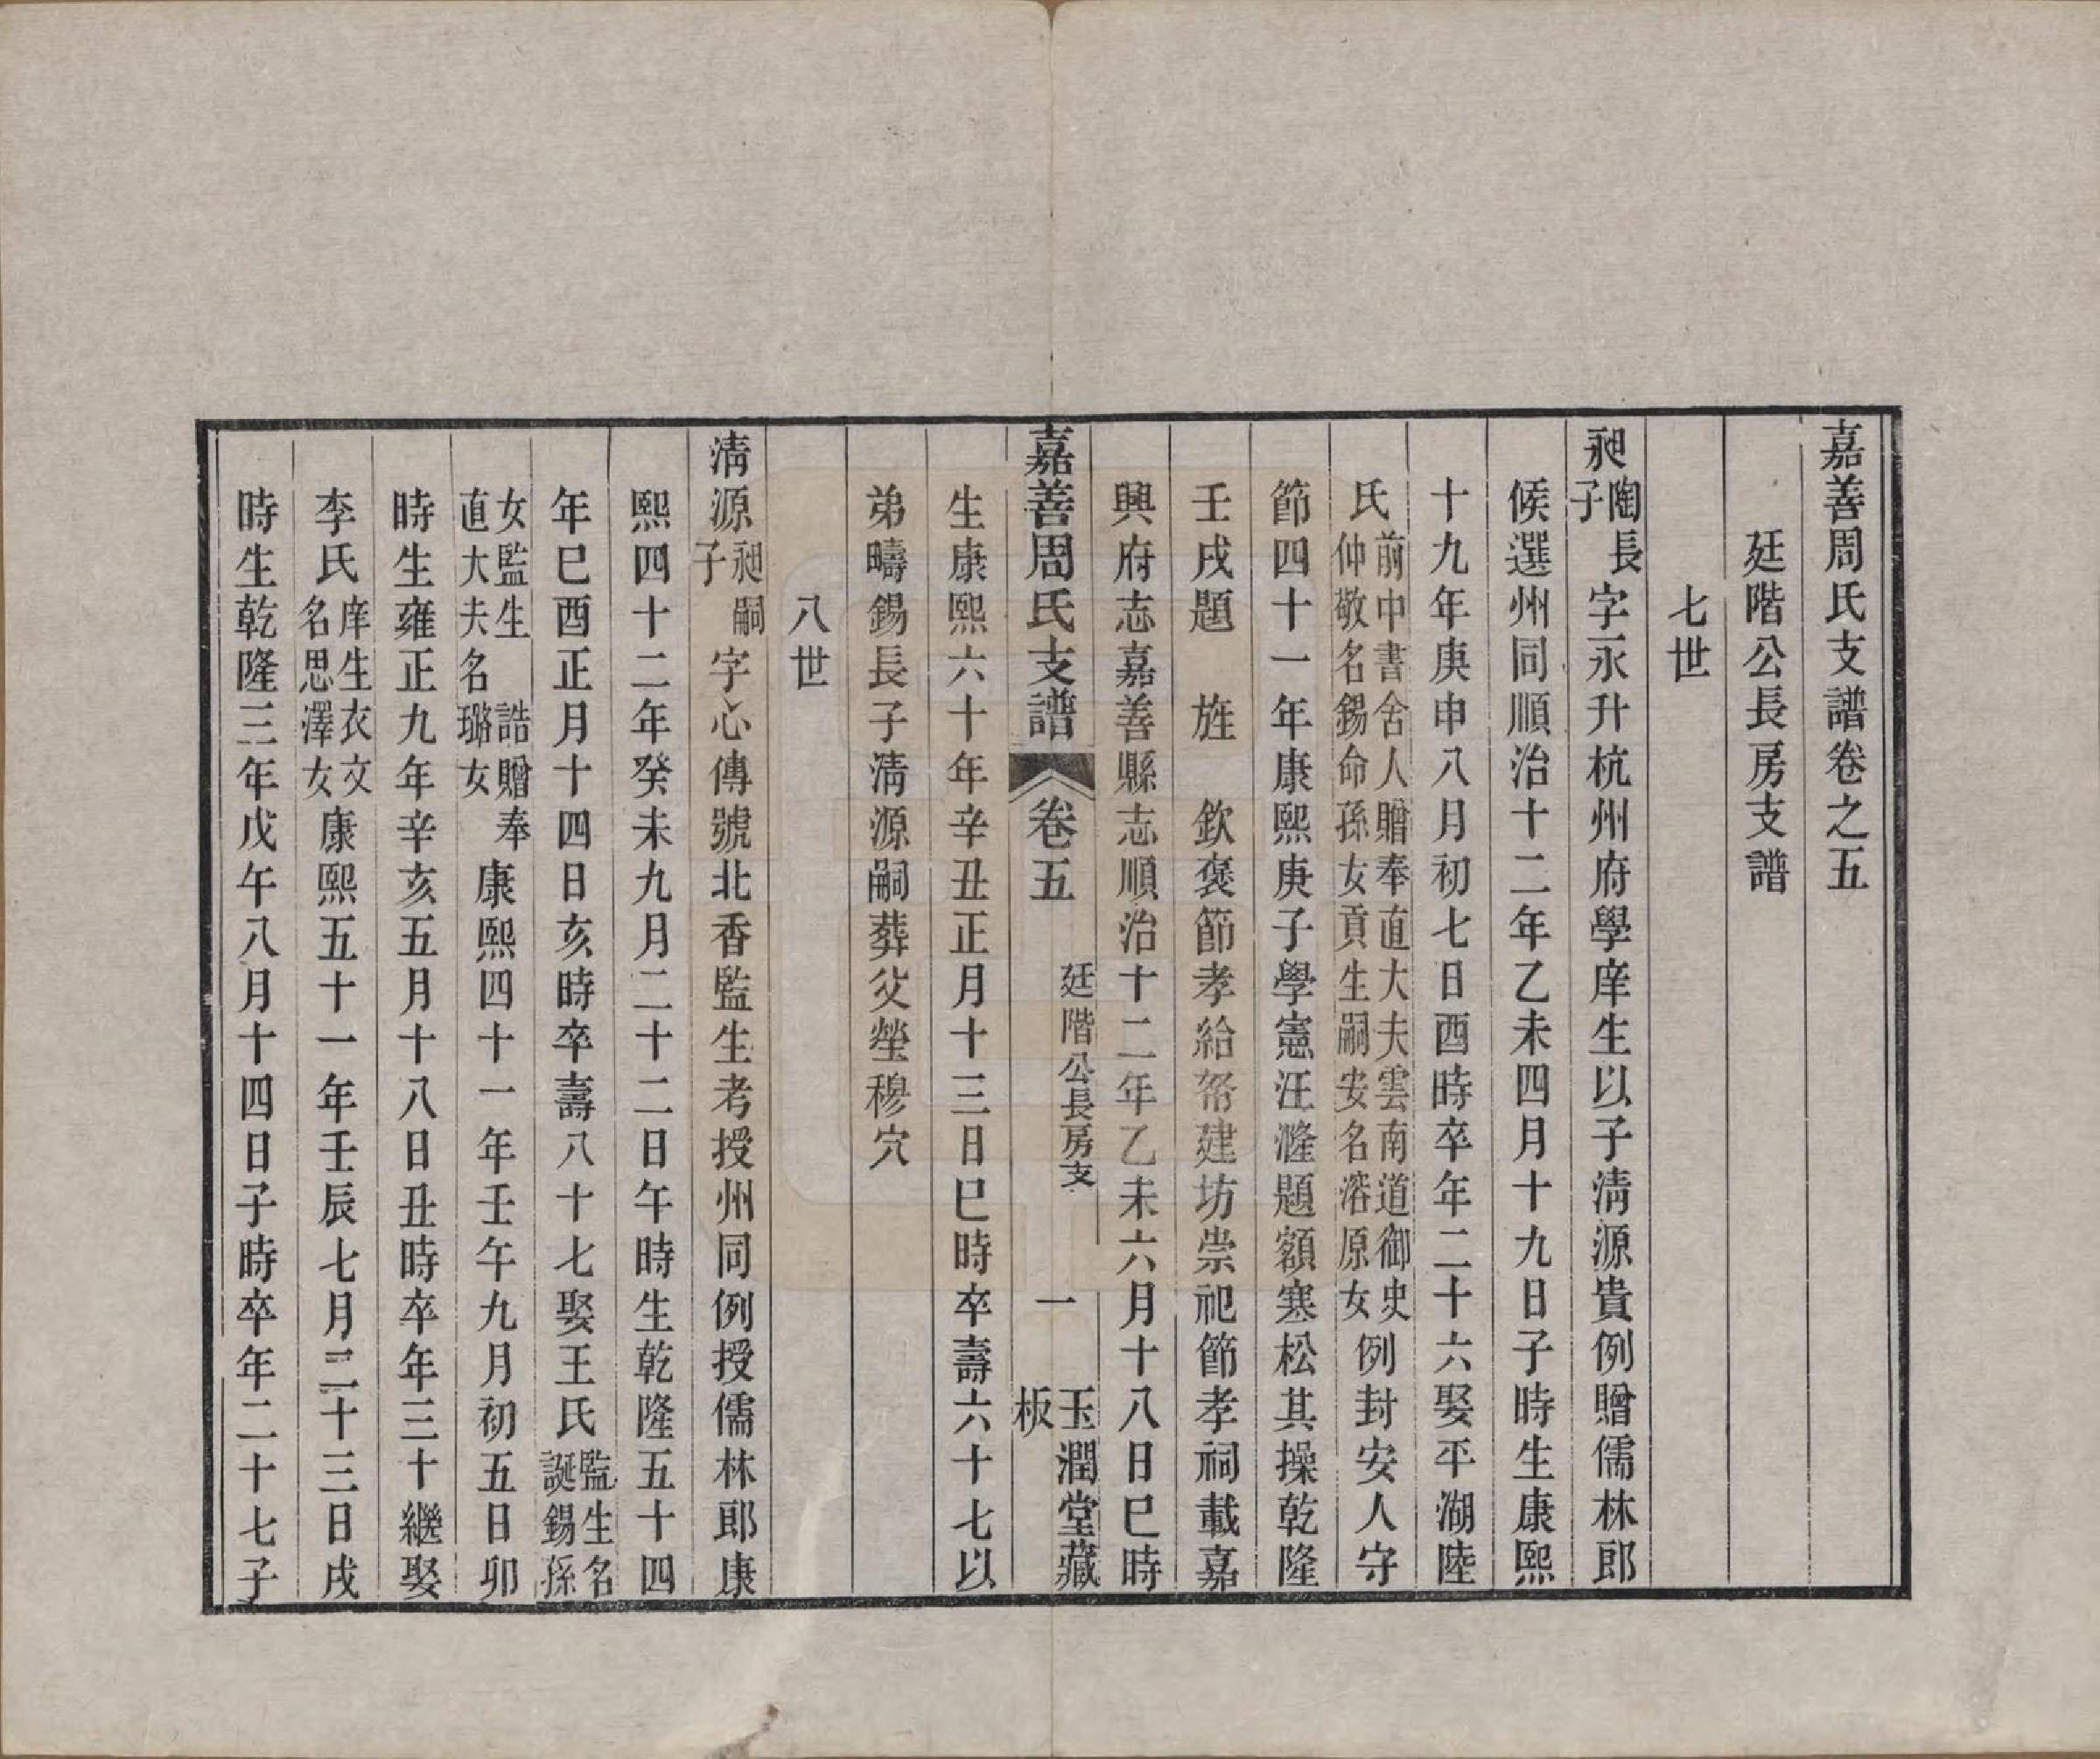 嘉善周氏支譜卷之五
廷階公長房支譜
七世
昶陶長子字永升杭州府學庠生以子清源貴例贈儒林郎
候選州同順治十二年乙未四月十九日子時生康熙
十九年庚申八月初七日酉時卒年二十六娶平湖陸
氏前中書舍人贈奉直大夫雲南道御史仲敬名錫命孫女貢生嗣安名溶原女例封安人守
節四十一年康熙庚子學憲汪漋題額寒松其操乾隆
壬戌題 旌 欽褒節孝給帑建坊崇祀節孝祠載嘉
興府志嘉善縣志順治十二年乙未六月十八日巳時
嘉善周氏支譜 卷五 廷階公長房支 一 玉潤堂藏板
生康熙六十年辛丑正月十三日巳時卒壽六十七以
弟疇錫長子清源嗣葬父塋穆穴
八世
清源昶嗣子字心傳號北香監生考授州同例授儒林郎康
熙四十二年癸未九月二十二日午時生乾隆五十四
年己酉正月十四日亥時卒壽八十七娶王氏監生名誕錫孫
女監生 誥贈奉直大夫名璐女康熙四十一年壬午九月初五日卯
時生雍正九年辛亥五月十八日丑時卒年三十繼娶
李氏庠生衣文名思澤女康熙五十一年壬辰七月二十三日戌
時生乾隆三年戊午八月十四日子時卒年二十七子